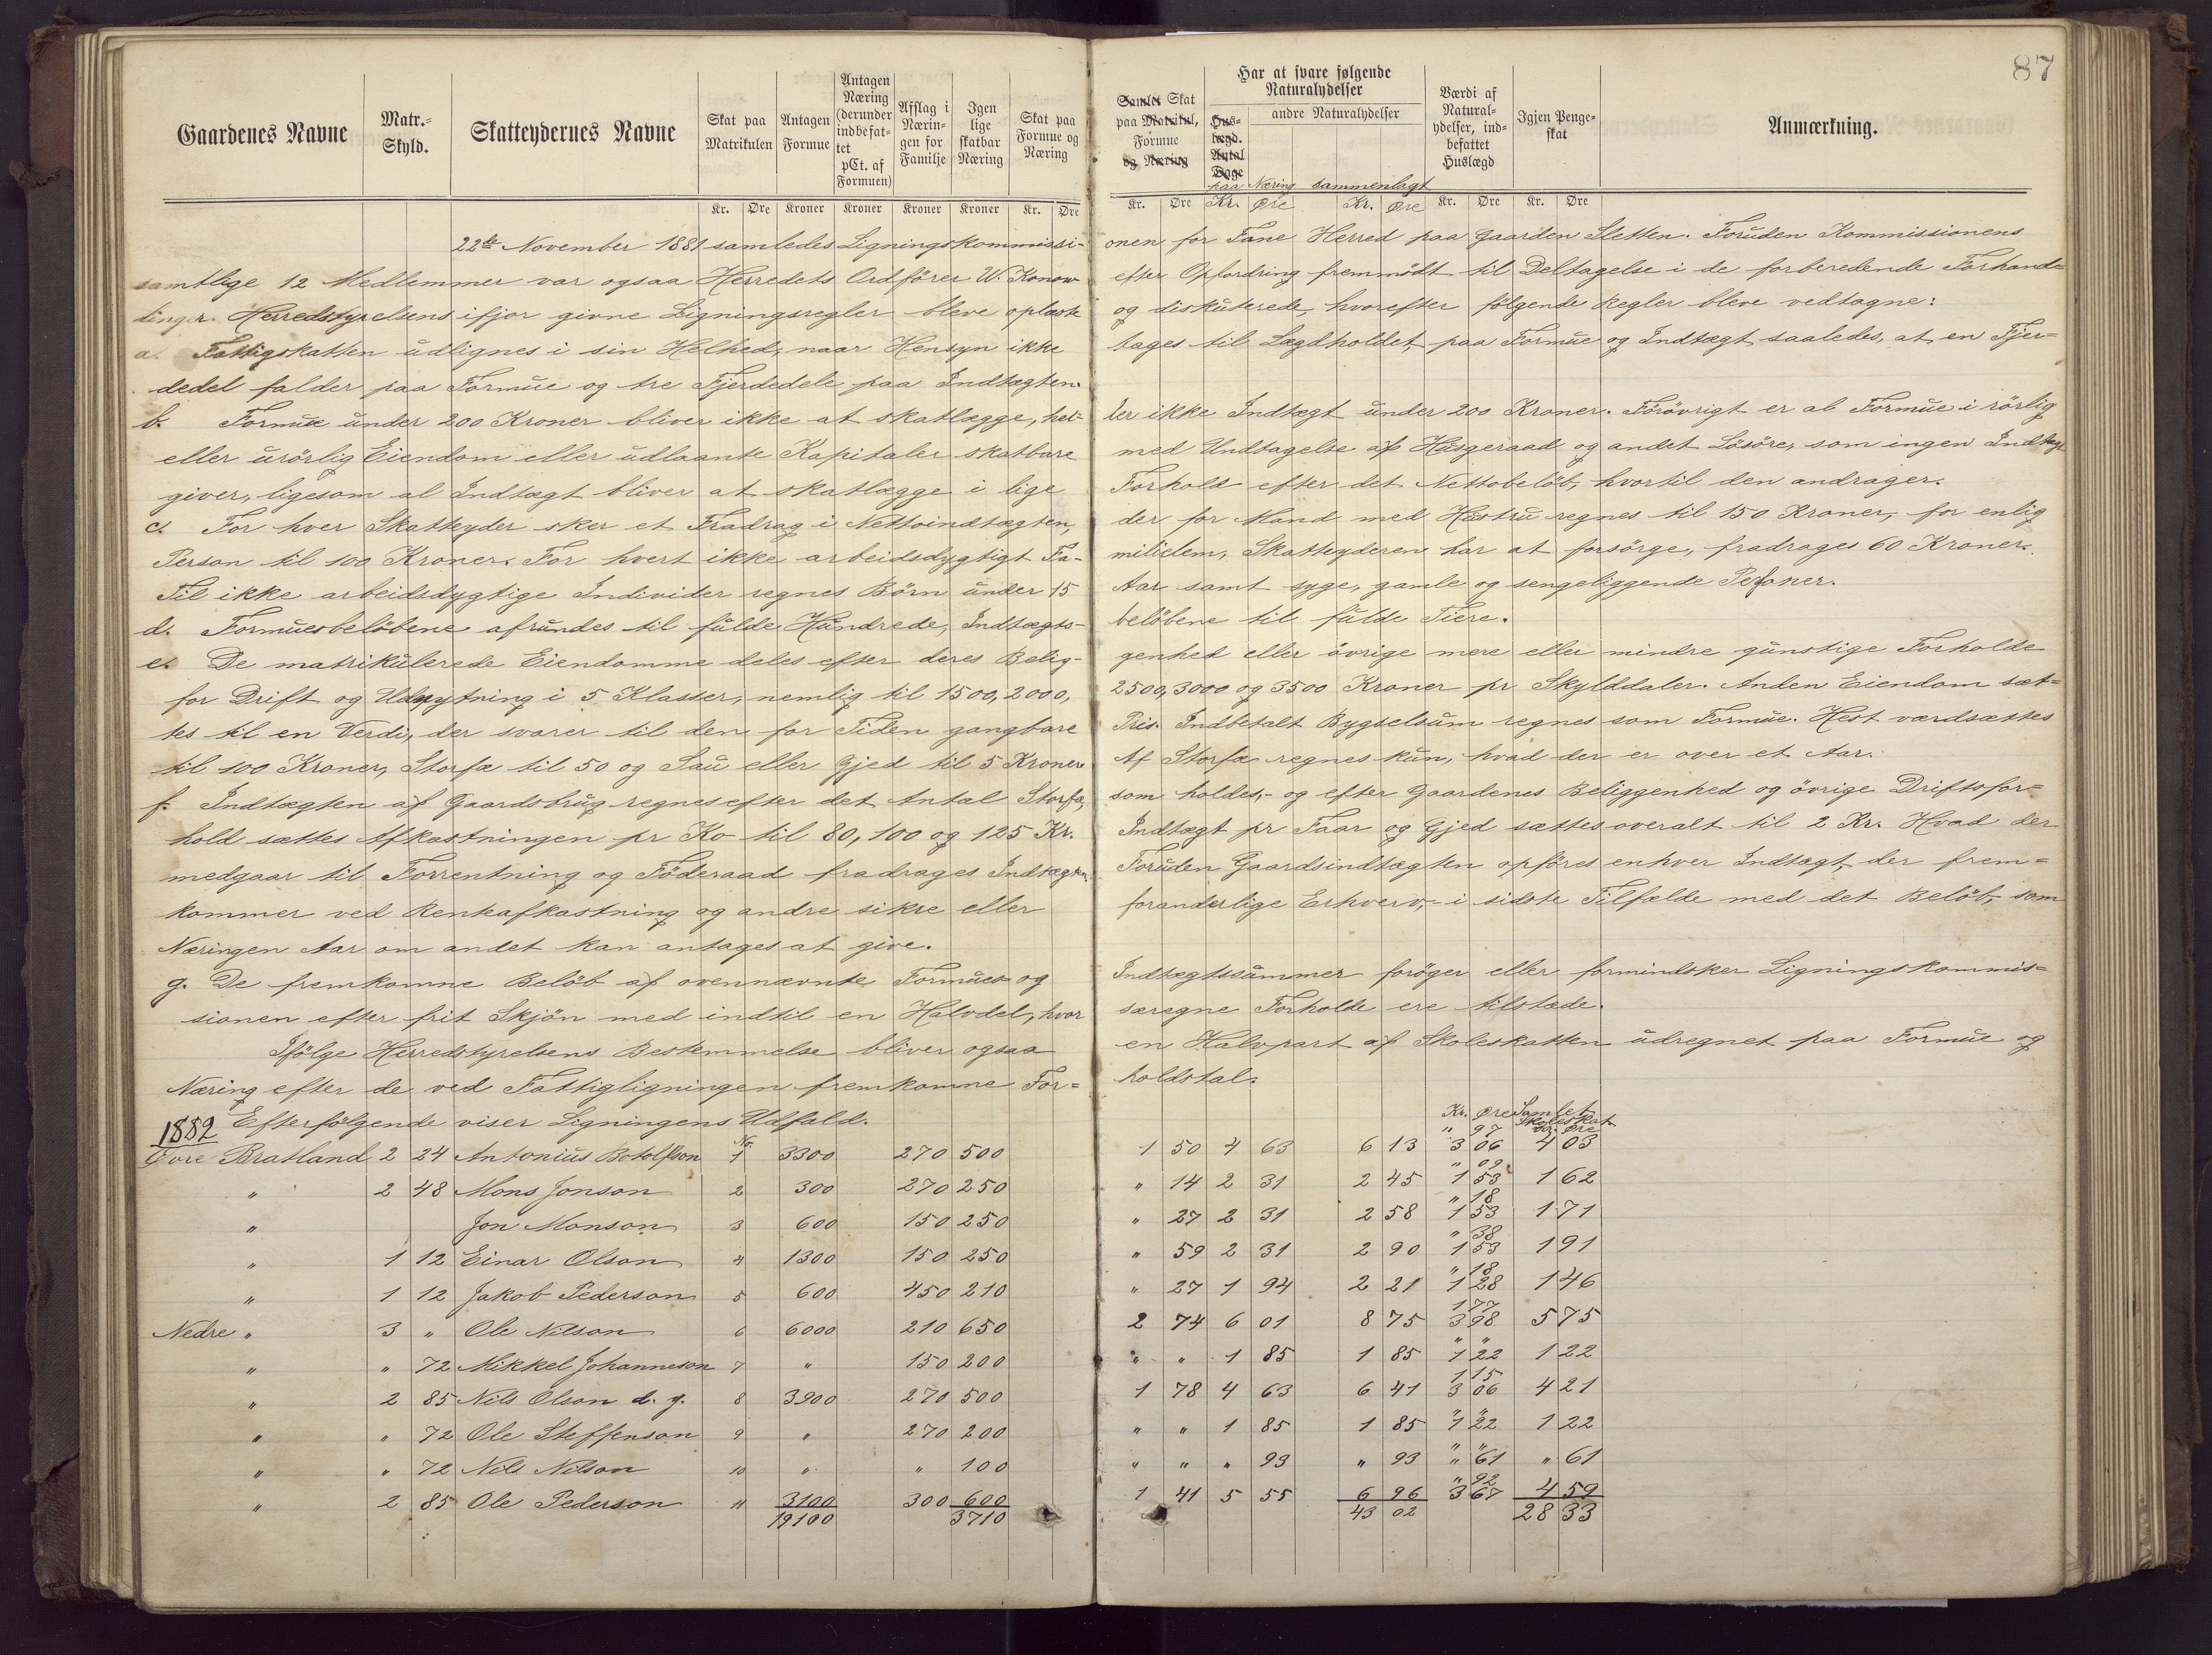 87
Gaardenes Navne | Matr.-Skyld. | Skatteydernes Navne | Skat paa Matrikulen | Antagen Formue | Antagen Næring (derunder indbefattet pCt. af Formuen) | Afslag i Næringen for Familje | Igen lige skatbar Næring | Skat paa Formue og Næring | Samlet Skat paa Matrikul, Formue og Næring | Har at svare følgende Naturalydelser | Huslægd. Antal Dage | andre Naturalydelser | Værdi af Naturalydelser, indbefattet Huslægd | Igjen Penge-skat | Anmærkning.
paa Næring sammenlagt
Kr. | Øre | Kroner | Kroner | Kroner | Kroner | Kr. | Øre | Kr. | Øre | Kr. | Øre | Kr. | Øre | Kr. | Øre | Kr. | Øre
22de November 1881 samledes Ligningskommissi- onen for Fane Herred paa Gaarden Sletten. Foruden Kommissionens
samtlige 12 Medlemmer var ogsaa Herredets Ordförer W. Konow efter Opfordring fremmödt til Deltagelse i de forberedende Forhand=
linger. Herredstyrelsens ifjor givne Ligningsregler bleve oplæste og diskuterede, hvorefter følgende Regler bleve vedtagne:
a. Fattigskatten udlignes i sin Helhed, naar Hensyn ikke tages til Lægdholdet, paa Formue og Indtægt saaledes, at en Fjer=
dedel falder paa Formue og tre Fjerdedele paa Indtægten.
b. Formue under 200 Kroner bliver ikke at skatlægge, hel- ler ikke Indtægt under 200 Kroner. Forövrigt er al Formue i rörlig
eller urörlig Eiendom eller udlaante Kapitaler skatbare med Undtagelse af Husgeraad og andet Lösöre, som ingen Indtægt
giver, ligesom al Indtægt bliver at skatlægge i lige Forhold efter det Nettobelöb, hvortil den andrager.
c. For hver Skatteyder sker et Fradrag i Nettoindtægten, der for Mand med Hustru regnes til 150 Kroner, for enlig
Person til 100 Kroner. For hvert ikke arbeidsdygtigt Fa- milielem, Skatteyderen har at forsörge, fradrages 60 Kroner.
Til ikke arbeidsdygtige Individer regnes Börn under 15 Aar samt syge, gamle og sengeliggende Personer.
d. Formuesbelöbene afrundes til fulde Hundrede, Indtægts- belöbene til fulde Tiere.
e. De matrikulerede Eiendomme deles efter deres Belig- genhed eller övrige mere eller mindre gunstige Forholde
for Drift og Udnytning i 5 Klasser, nemlig til 1500, 2000, 2500, 3000 og 3500 Kroner pr Skylddaler. Anden Eiendom sæt=
tes til en Verdi, der svarer til den for Tiden gangbare Pris. Indbetalt Bygselsum regnes som Formue. Hest værdsættes
til 100 Kroner, Storfæ til 50 og Sau eller Gjed til 5 Kroner Af Storfæ regnes kun, hvad der er over et Aar.
f. Indtægten af Gaardsbrug regnes efter det Antal Storfæ, som holdes,- og efter Gaardenes Beliggenhed og övrige Driftsfor=
hold sættes Afkastningen pr Ko til 80, 100 og 125 Kr. Indtægt pr Faar og Gjed sættes overalt til 2 Kr. Hvad der
medgaar til Forrentning og Föderaad fradrages Indtægten. Foruden Gaardsindtægten opföres enhver Indtægt, der frem=
kommer ved Renteafkastning og andre sikre eller foranderlige Erhverv,- i sidste Tilfælde med det Belöb, som
Næringen Aar om andet kan antages at give.
g. De fremkomne Belöb af ovennævnte Formues og Indtægtssummer foröger eller formindsker Ligningskommis=
sionen efter frit Skjön med indtil en Halvdel, hvor særegne Forholde ere tilstæde.
Ifölge Herredstyrelsens Bestemmelse bliver ogsaa en Halvpart af Skoleskatten udregnet paa Formue og
Næring efter de ved Fattigligningen fremkomne For= holdstal.
Efterfölgende viser Ligningens Udfald.
1882 | No. | Kr. Øre | Samlet Skoleskat Kr. Øre
Övre Bratland | 2 | 24 | Antonius Botolfson | 1 | 3300 | 270 | 500 | 1 | 50 | 4 | 63 | 6 | 13 | " 97 | 3 06 | 4 03
" | 2 | 48 | Mons Jonson | 2 | 300 | 270 | 250 | " | 14 | 2 | 31 | 2 | 45 | " 09 | 1 53 | 1 62
" | Jon Monson | 3 | 600 | 150 | 250 | " | 27 | 2 | 31 | 2 | 58 | " 18 | 1 53 | 1 71
" | 1 | 12 | Einar Olson | 4 | 1300 | 150 | 250 | " | 59 | 2 | 31 | 2 | 90 | " 38 | 1 53 | 1 91
" | 1 | 12 | Jakob Pederson | 5 | 600 | 450 | 210 | " | 27 | 1 | 94 | 2 | 21 | " 18 | 1 28 | 1 46
Nedre " | 3 | " | Ole Nilson | 6 | 6000 | 210 | 650 | 2 | 74 | 6 | 01 | 8 | 75 | 1 77 | 3 98 | 5 75
" | " | 72 | Mikkel Johanneson | 7 | " | 150 | 200 | " | " | 1 | 85 | 1 | 85 | " " | 1 22 | 1 22
" | 2 | 85 | Nils Olson d. y. | 8 | 3900 | 270 | 500 | 1 | 78 | 4 | 63 | 6 | 41 | 1 15 | 3 06 | 4 21
" | " | 72 | Ole Steffenson | 9 | " | 270 | 200 | " | " | 1 | 85 | 1 | 85 | " " | 1 22 | 1 22
" | " | 72 | Nils Nilson | 10 | " | " | 100 | " | " | " | 93 | " | 93 | " " | " 61 | " 61
" | 2 | 85 | Ole Pederson | 11 | 3100 | 300 | 600 | 1 | 41 | 5 | 55 | 6 | 96 | " 92 | 3 67 | 4 59
19100 | 3710 | 43 | 02 | 28 33